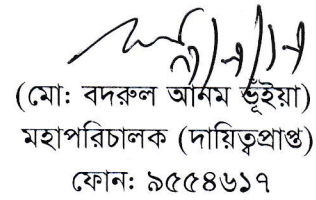 (মো: বদরুল আনম ভূঁইয়া)
মহাপরিচালক (দায়িত্বপ্রাপ্ত)
ফোন: ৯৫৫৪৬১৭